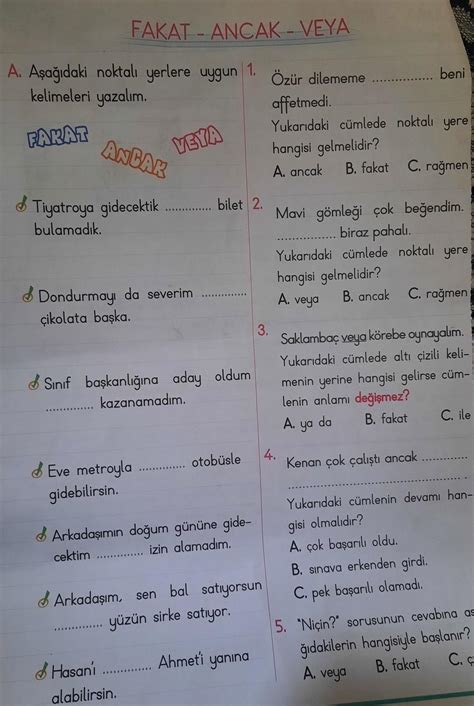 FAKAT - ANCAK - VEYA
A. Aşağıdaki noktalı yerlere uygun
kelimeleri yazalım.
FAKAT
ANCAK
VEYA
Tiyatroya gidecektik ............. bilet
bulamadık.
Dondurmayı da severim .............
çikolata başka.
Sınıf başkanlığına aday oldum
............. kazanamadım.
Eve metroyla ............. otobüsle
gidebilirsin.
Arkadaşımın doğum gününe gide-
cektim ............. izin alamadım.
Arkadaşım, sen bal satıyorsun
............. yüzün sirke satıyor.
Hasan'ı ............. Ahmet'i yanına
alabilirsin.
1. Özür dilememe ................ beni
affetmedi.
Yukarıdaki cümlede noktalı yere
hangisi gelmelidir?
A. ancak B. fakat C. rağmen
2. Mavi gömleği çok beğendim.
................ biraz pahalı.
Yukarıdaki cümlede noktalı yere
hangisi gelmelidir?
A. veya B. ancak C. rağmen
3. Saklambaç veya körebe oynayalım.
Yukarıdaki cümlede altı çizili keli-
menin yerine hangisi gelirse cüm-
lenin anlamı değişmez?
A. ya da B. fakat C. ile
4. Kenan çok çalıştı ancak .............
................................................
Yukarıdaki cümlenin devamı han-
gisi olmalıdır?
A. çok başarılı oldu.
B. sınava erkenden girdi.
C. pek başarılı olamadı.
5. "Niçin?" sorusunun cevabına aş
ğıdakilerin hangisiyle başlanır?
A. veya B. fakat C. ç